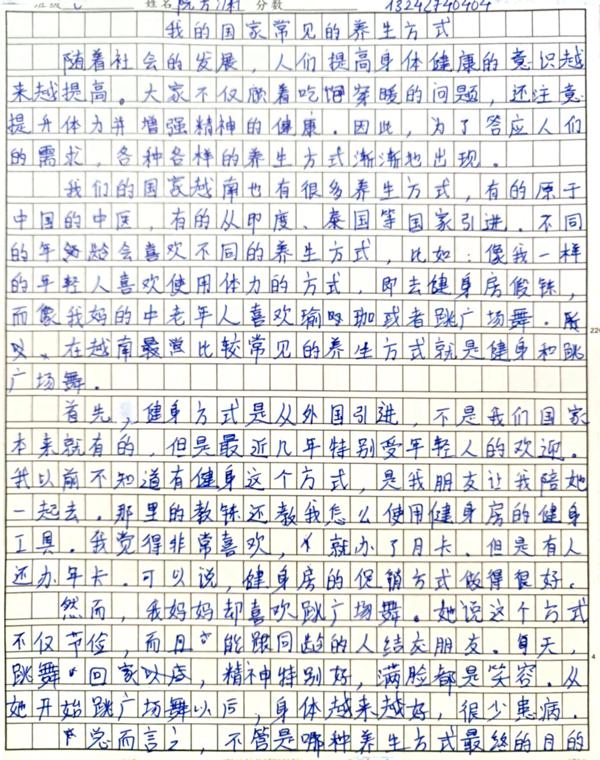 姓名 阮 分数 13242740404
我的国家常见的养生方式
随着社会的发展，人们提高身体健康的意识越
来越提高。大家不仅顾着吃饱穿暖的问题，还注意
提升体力并增强精神的健康。因此，为了答应人们
的需求，各种各样的养生方式渐渐地出现。
我们的国家越南也有很多养生方式，有的原于
中国的中医，有的从印度、泰国等国家引进。不同
的年龄会喜欢不同的养生方式，比如：像我一样
的年轻人喜欢使用体力的方式，即去健身房假铼，
而像我妈的中老年人喜欢瑜珈或者跳广场舞。所
以，在越南最比较常见的养生方式就是健身和跳
广场舞。
首先，健身方式是从外国引进，不是我们国家
本来就有的，但是最近几年特别受年轻人的欢迎。
我以前不知道有健身这个方式，是我朋友让我陪她
一起去。那里的教铼还教我怎么使用健身房的健身
工具。我觉得非常喜欢，就办了月卡。但是有人
还办年卡。可以说，健身房的促销方式做得很好。
然而，我妈妈却喜欢跳广场舞。她说这个方式
不仅节俭，而且能跟同龄的人结交朋友。每天，
跳舞回家以后，精神特别好，满脸都是笑容。从
她开始跳广场舞以后，身体越来越好，很少患病。
总而言之，不管是哪种养生方式最终的目的